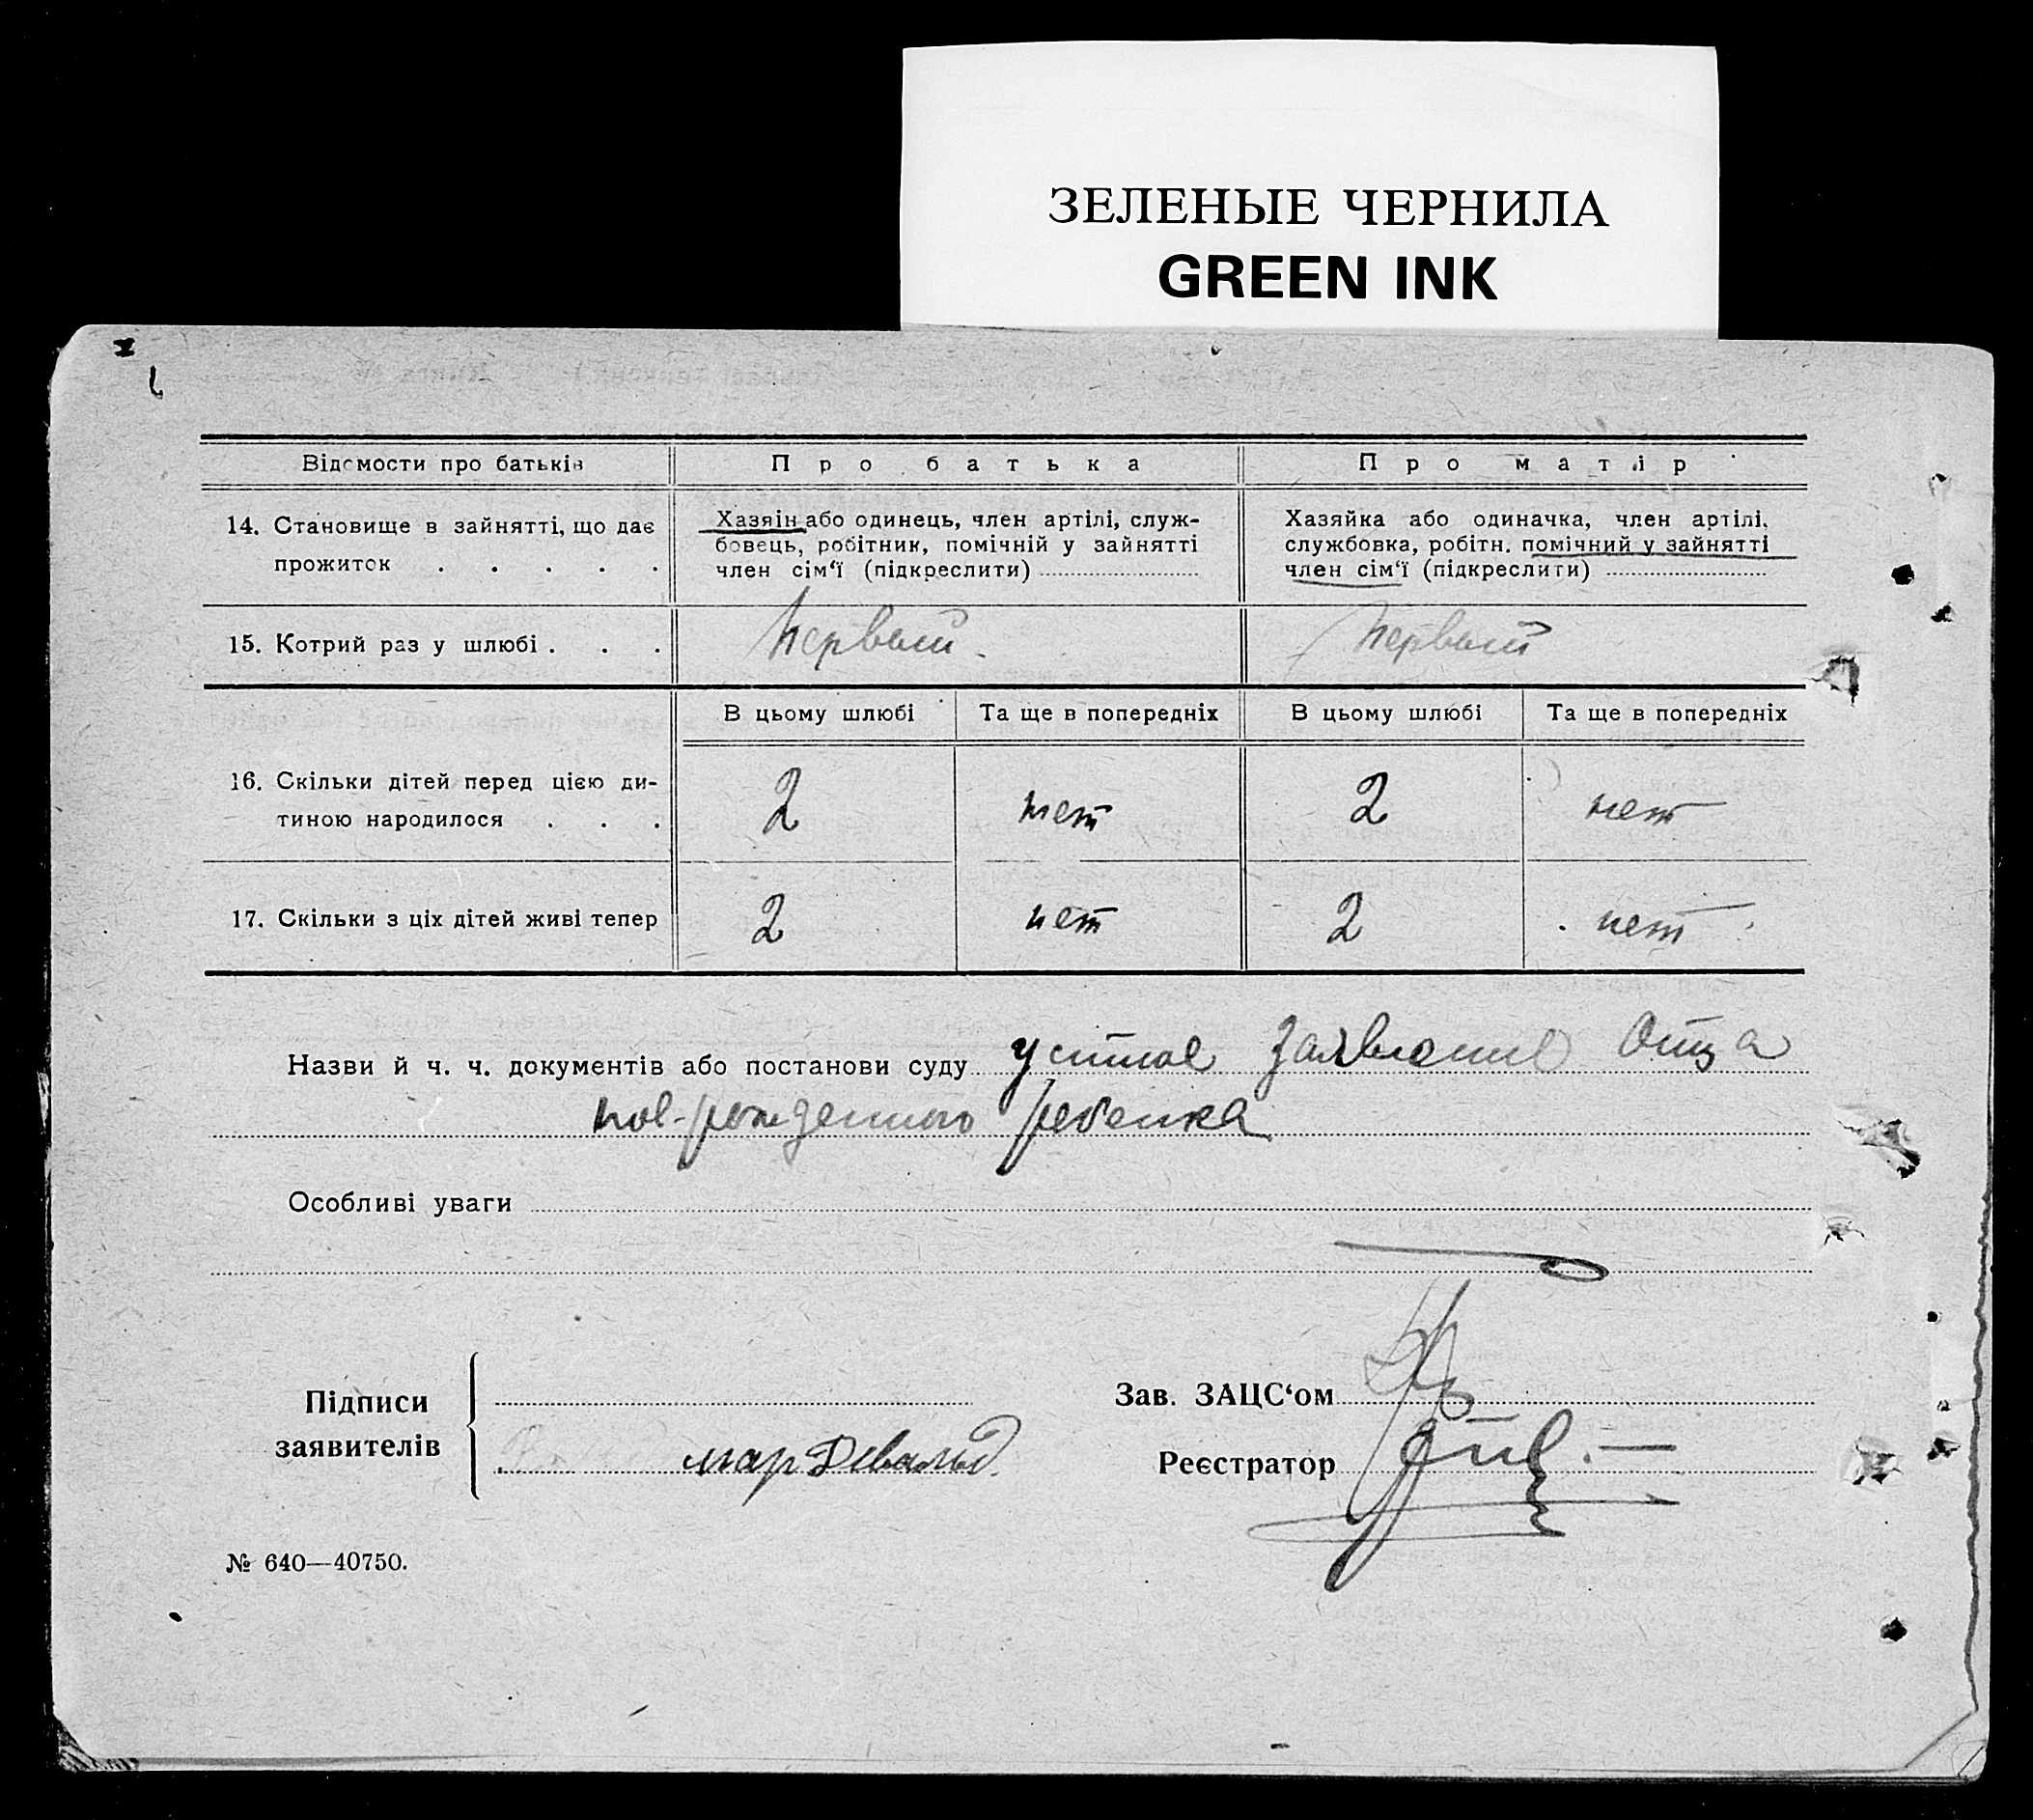 ЗЕЛЕНЫЕ ЧЕРНИЛА
GREEN INK
Відомости про батьків
Про батька
Про матір
14. Становище в зайнятті, що дає
прожиток . . . . .
Хазяін або одинець, член артілі, служ-
бовець, робітник, помічній у зайнятті
член сім‘ї (підкреслити)
Хазяйка або одиначка, член артілі,
службовка, робітн. помічний у зайнятті
член сім‘ї (підкреслити)
15. Котрий раз у шлюбі . . .
Первый
Первый
В цьому шлюбі
Та ще в попередніх
В цьому шлюбі
Та ще в попередніх
16. Скільки дітей перед цією ди-
тиною народилося . . .
2
нет
2
нет
17. Скільки з ціх дітей живі тепер
2
нет
2
нет
Назви й ч. ч. документів або постанови суду устное заявление отца
нов-рожденного ребенка
Особливі уваги
Підписи
заявителів
Зав. ЗАЦС‘ом
Реєстратор
№ 640—40750.